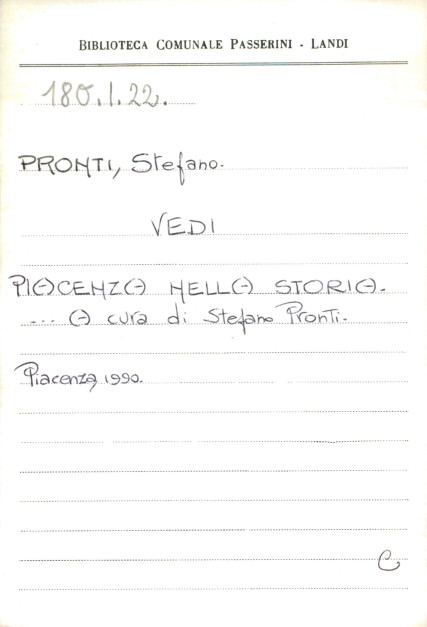 BIBLIOTECA COMUNALE PASSERINI - LANDI
180.I.22.
PRONTI, Stefano.
VEDI
PIACENZA NELLA STORIA.
... A cura di Stefano Pronti.
Piacenza, 1990.
C